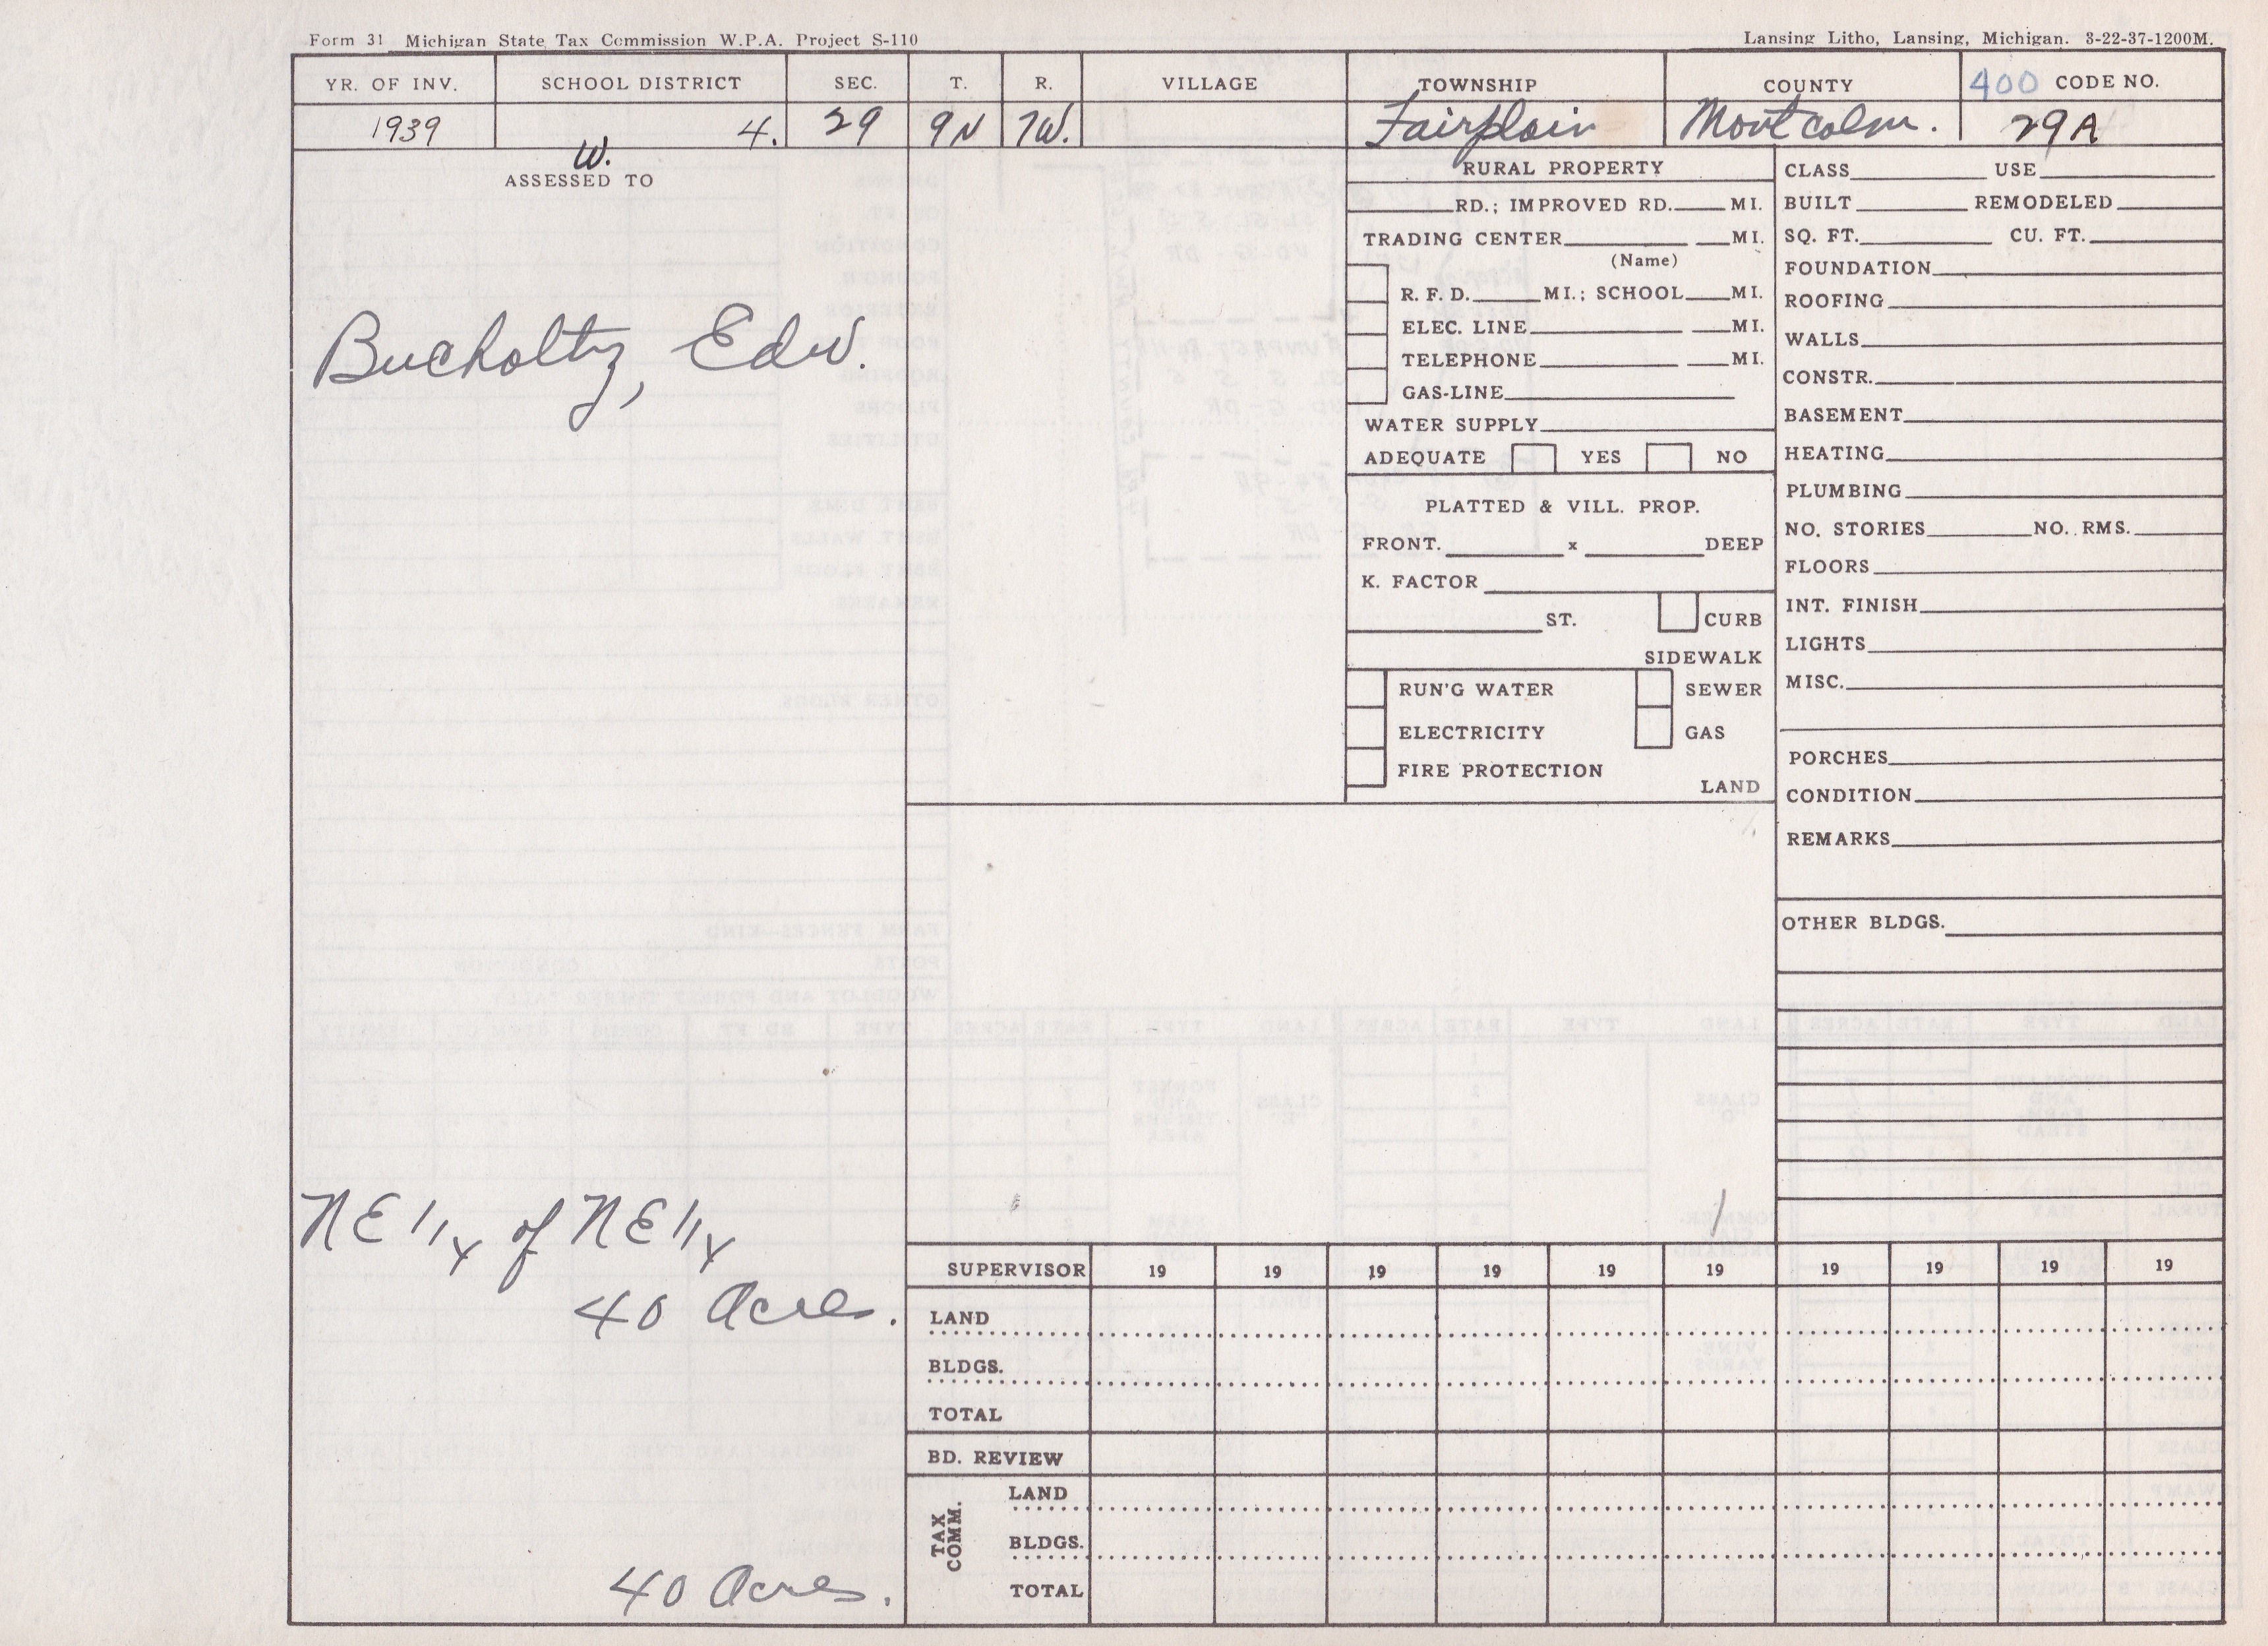 Form 31 Michigan State Tax Commission W.P.A. Project S-110
Lansing Litho, Lansing, Michigan. 3-22-37-1200M.
YR. OF INV. SCHOOL DISTRICT SEC. T. R. VILLAGE TOWNSHIP COUNTY 400 CODE NO.
1939 4. 29 9N 7W. Fairplain Montcalm. 29A
W.
ASSESSED TO
Bucholtz, Edw.
NE 1/4 of NE 1/4
40 Acres.
40 Acres.
RURAL PROPERTY
RD.; IMPROVED RD. MI.
TRADING CENTER MI.
(Name)
R. F. D. MI.; SCHOOL MI.
ELEC. LINE MI.
TELEPHONE MI.
GAS-LINE
WATER SUPPLY
ADEQUATE YES NO
PLATTED & VILL. PROP.
FRONT. x DEEP
K. FACTOR
ST. CURB
SIDEWALK
RUN'G WATER SEWER
ELECTRICITY GAS
FIRE PROTECTION
LAND
CLASS USE
BUILT REMODELED
SQ. FT. CU. FT.
FOUNDATION
ROOFING
WALLS
CONSTR.
BASEMENT
HEATING
PLUMBING
NO. STORIES NO. RMS.
FLOORS
INT. FINISH
LIGHTS
MISC.
PORCHES
CONDITION
REMARKS
OTHER BLDGS.
SUPERVISOR 19 19 19 19 19 19 19 19 19 19
LAND
BLDGS.
TOTAL
BD. REVIEW
TAX COMM.
LAND
BLDGS.
TOTAL